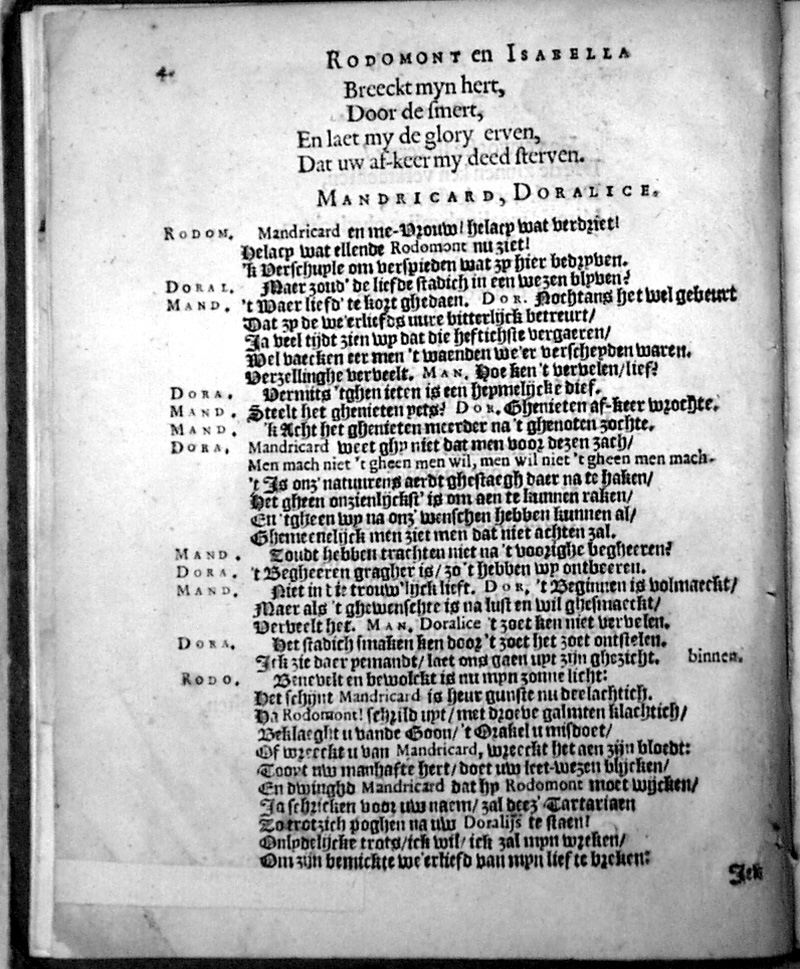 4.
RODOMONT en ISABELLA
Breeckt myn hert,
Door de smert,
En laet my de glory erven,
Dat uw af-keer my deed sterven.
MANDRICARD, DORALICE.
RODOM. Mandricard en me-Vrouw! helaep wat verdriet!
Helaep wat ellende Rodomont nu ziet!
'k Verschuyle om verspieden wat zy hier bedryven.
DORAL. Maer zoud' de liefde stadich in een wezen blyven?
MAND. 't Waer liefd' te kort ghedaen. DOR. Nochtans het wel gebeurt
Dat zy de we'erliefds uure bitterlijck betreurt/
Ja veel tijdt zien wy dat die heftichste vergaeren/
Wel vaecken eer men 't waenden we'er verscheyden waren.
Verzellinghe verveelt. MAN. Hoe ken't vervelen/lief?
DORA. Vermits 'tghenieten is een heymelijcke dief.
MAND. Steelt het ghenieten yets? DOR. Ghenieten af-keer wrochte.
MAND. 'k Acht het ghenieten meerder na 't ghenoten zochte.
DORA. Mandricard weet ghy niet dat men voor dezen zach/
Men mach niet 't gheen men wil, men wil niet 't gheen men mach.
't Is onz' natuurens aerdt ghestaegh daer na te haken/
Het gheen onzienlijckst' is om aen te kunnen raken/
En 'tgheen wy na onz' wenschen hebben kunnen al/
Ghemeenelijck men ziet men dat niet achten zal.
MAND. Zoudt hebben trachten niet na 't voorighe begheeren?
DORA. 't Begheeren gragher is/ zo 't hebben wy ontbeeren.
MAND. Niet in die trouw'lijck lieft. DOR. 't Beginnen is volmaeckt/
Maer als 't ghewenschte is na lust en wil ghesmaeckt/
Verveelt het. MAN. Doralice 't zoet ken niet vervelen.
DORA. Het stadich smaken ken door 't zoet het zoet ontstelen.
Ick zie daer yemandt/ laet ons gaen uyt zijn ghezicht. binnen.
RODO. Benevelt en bewolckt is nu myn zonne licht:
Het schijnt Mandricard is heur gunste nu deelachtich.
Ha Rodomont! schrild uyt/ met droeve galmten klachtich/
Beklaeght u vande Goon/ 't Orakel u misdoet/
Of wreeckt u van Mandricard, wreeckt het aen zijn bloedt:
Toont uw manhafte hert/ doet uw leet-wezen blijcken/
En dwinghd Mandricard dat hy Rodomont moet wijcken/
Ja schricken voor uw naem/ zal deez' Tartariaen
Zo trotzich poghen na uw Doralijs te staen!
Onlydelijcke trots/ ick wil/ ick zal myn wreken/
Om zijn bemickte we'erliefd van myn lief te breken:
Ick